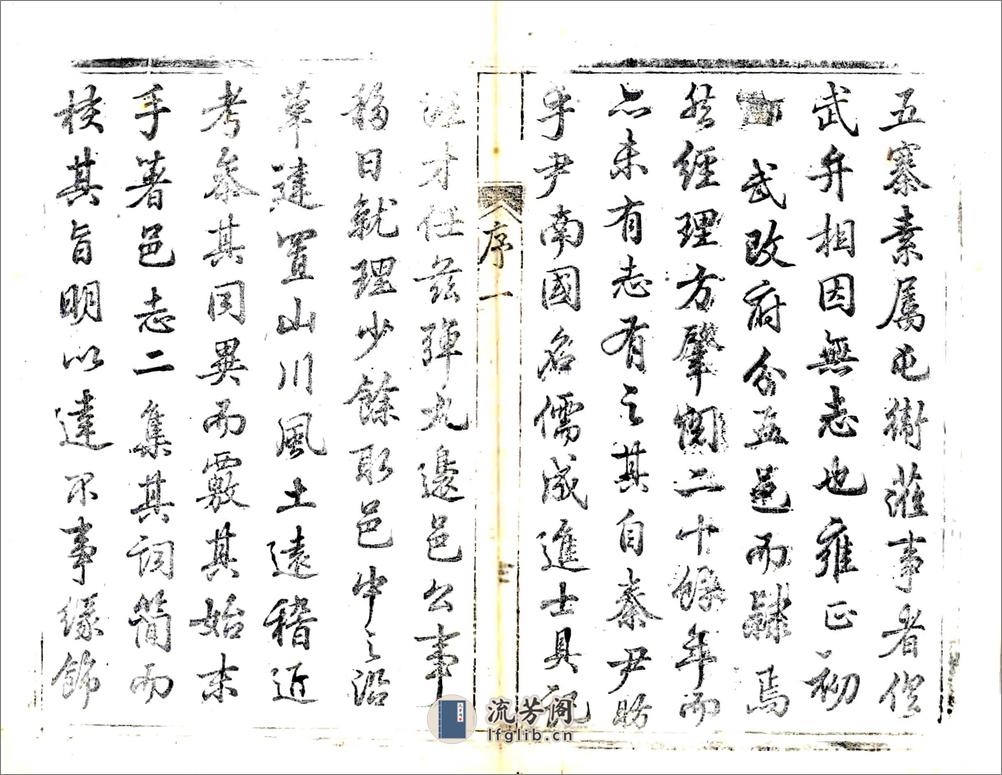 五寨素属屯衛蒞事者俱
武弁相因無志也雍正初
武改府分五邑而隸焉
然經理方肇闢二十餘年而
亦未有志有之其自秦尹昉
乎尹南國名儒成進士具
才任茲彈丸邊邑公事
移日就理少餘取邑中之沿
革建置山川風土遠稽近
考叅其同異而覈其始末
手著邑志二集其詞簡而
核其旨明以達不事緣飾
序一
流芳阁
lfglib.cn